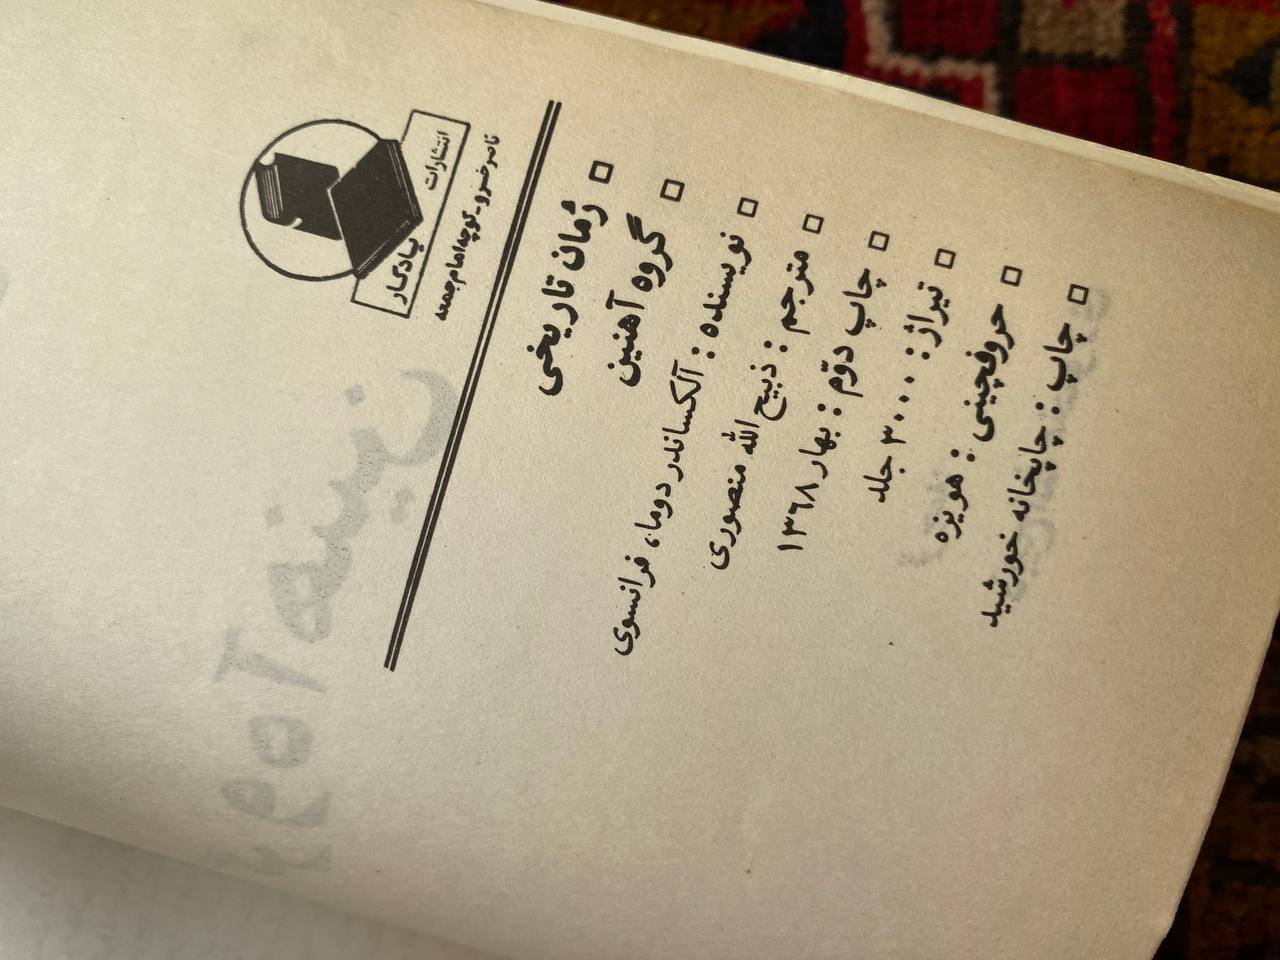 انتشارات
یادگار
ناصرخسرو - کوچه امام جمعه
رُمان تاریخی
گروه آهنین
نویسنده : آلکساندر دوما، فرانسوی
مترجم : ذبیح الله منصوری
چاپ دوّم : بهار ۱۳۶۸
تیراژ : ۳۰۰۰ جلد
حروفچینی : هویزه
چاپ : چاپخانه خورشید